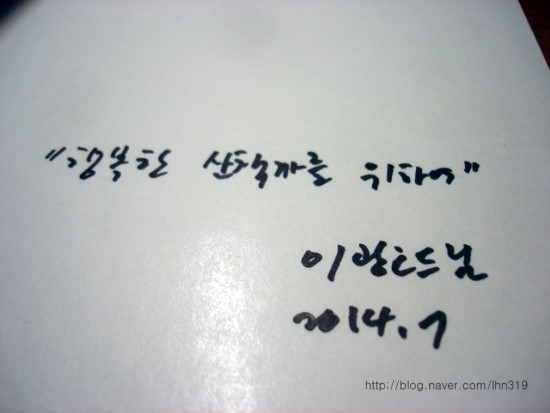 "행복한 산책까를 위하여"
이왕드림
2014. 7
http://blog.naver.com/lhn319